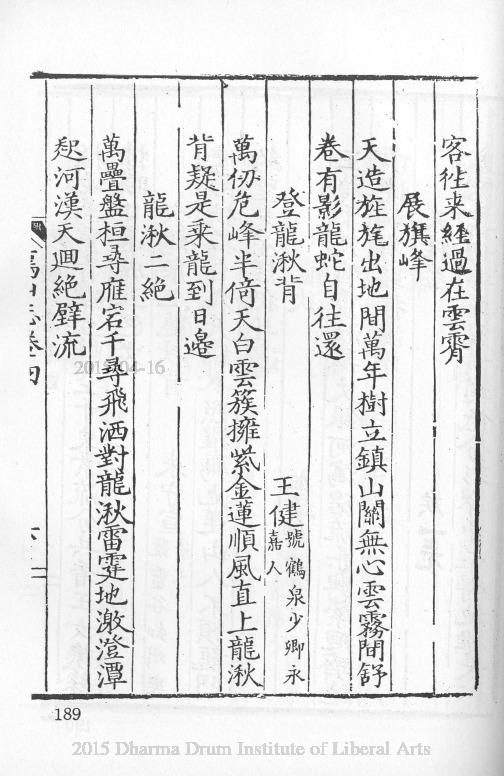 客往来經過在雲霄
展旗峰
天造旌旄出地間萬年樹立鎮山關無心雲霧間舒
卷有影龍蛇自往還
登龍湫背
王健號鶴泉少卿永嘉人
萬仞危峰半倚天白雲簇擁紫金蓮順風直上龍湫
背疑是乘龍到日邊
龍湫二絕
萬疊盤桓尋雁宕千尋飛洒對龍湫雷霆地激澄潭
起河漢天迴絕壁流
山志卷四
189
2015-04-16
2015 Dharma Drum Institute of Liberal Arts